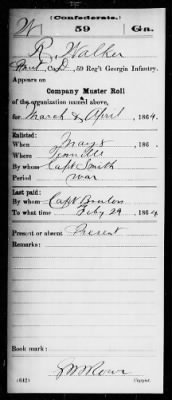 (Confederate.)
W 59 Ga.
R. Walker
Co. D, 59 Reg't Georgia Infantry.
Appears on
Company Muster Roll
of the organization named above,
for March & April, 1864.
Enlisted:
When May 8, 186
Where
By whom Capt Smith
Period War
Last paid:
By whom Capt
To what time Feby 29, 1864
Present or absent Present
Remarks:
Book mark:
(642)
Copyist.